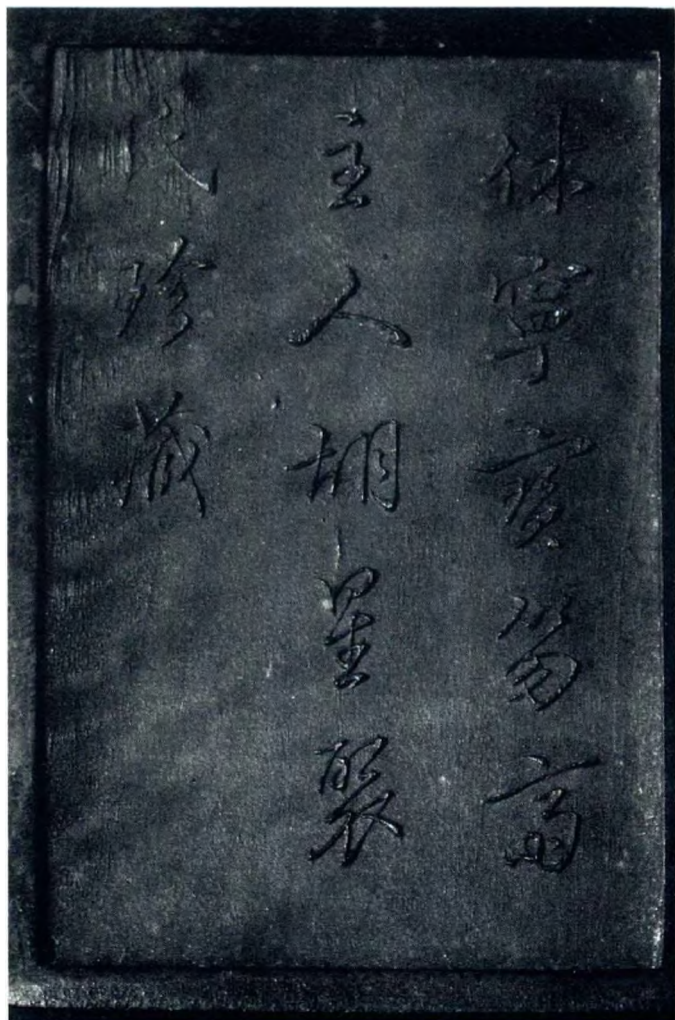 休寧寶笏齋
主人胡星聚
氏珍藏